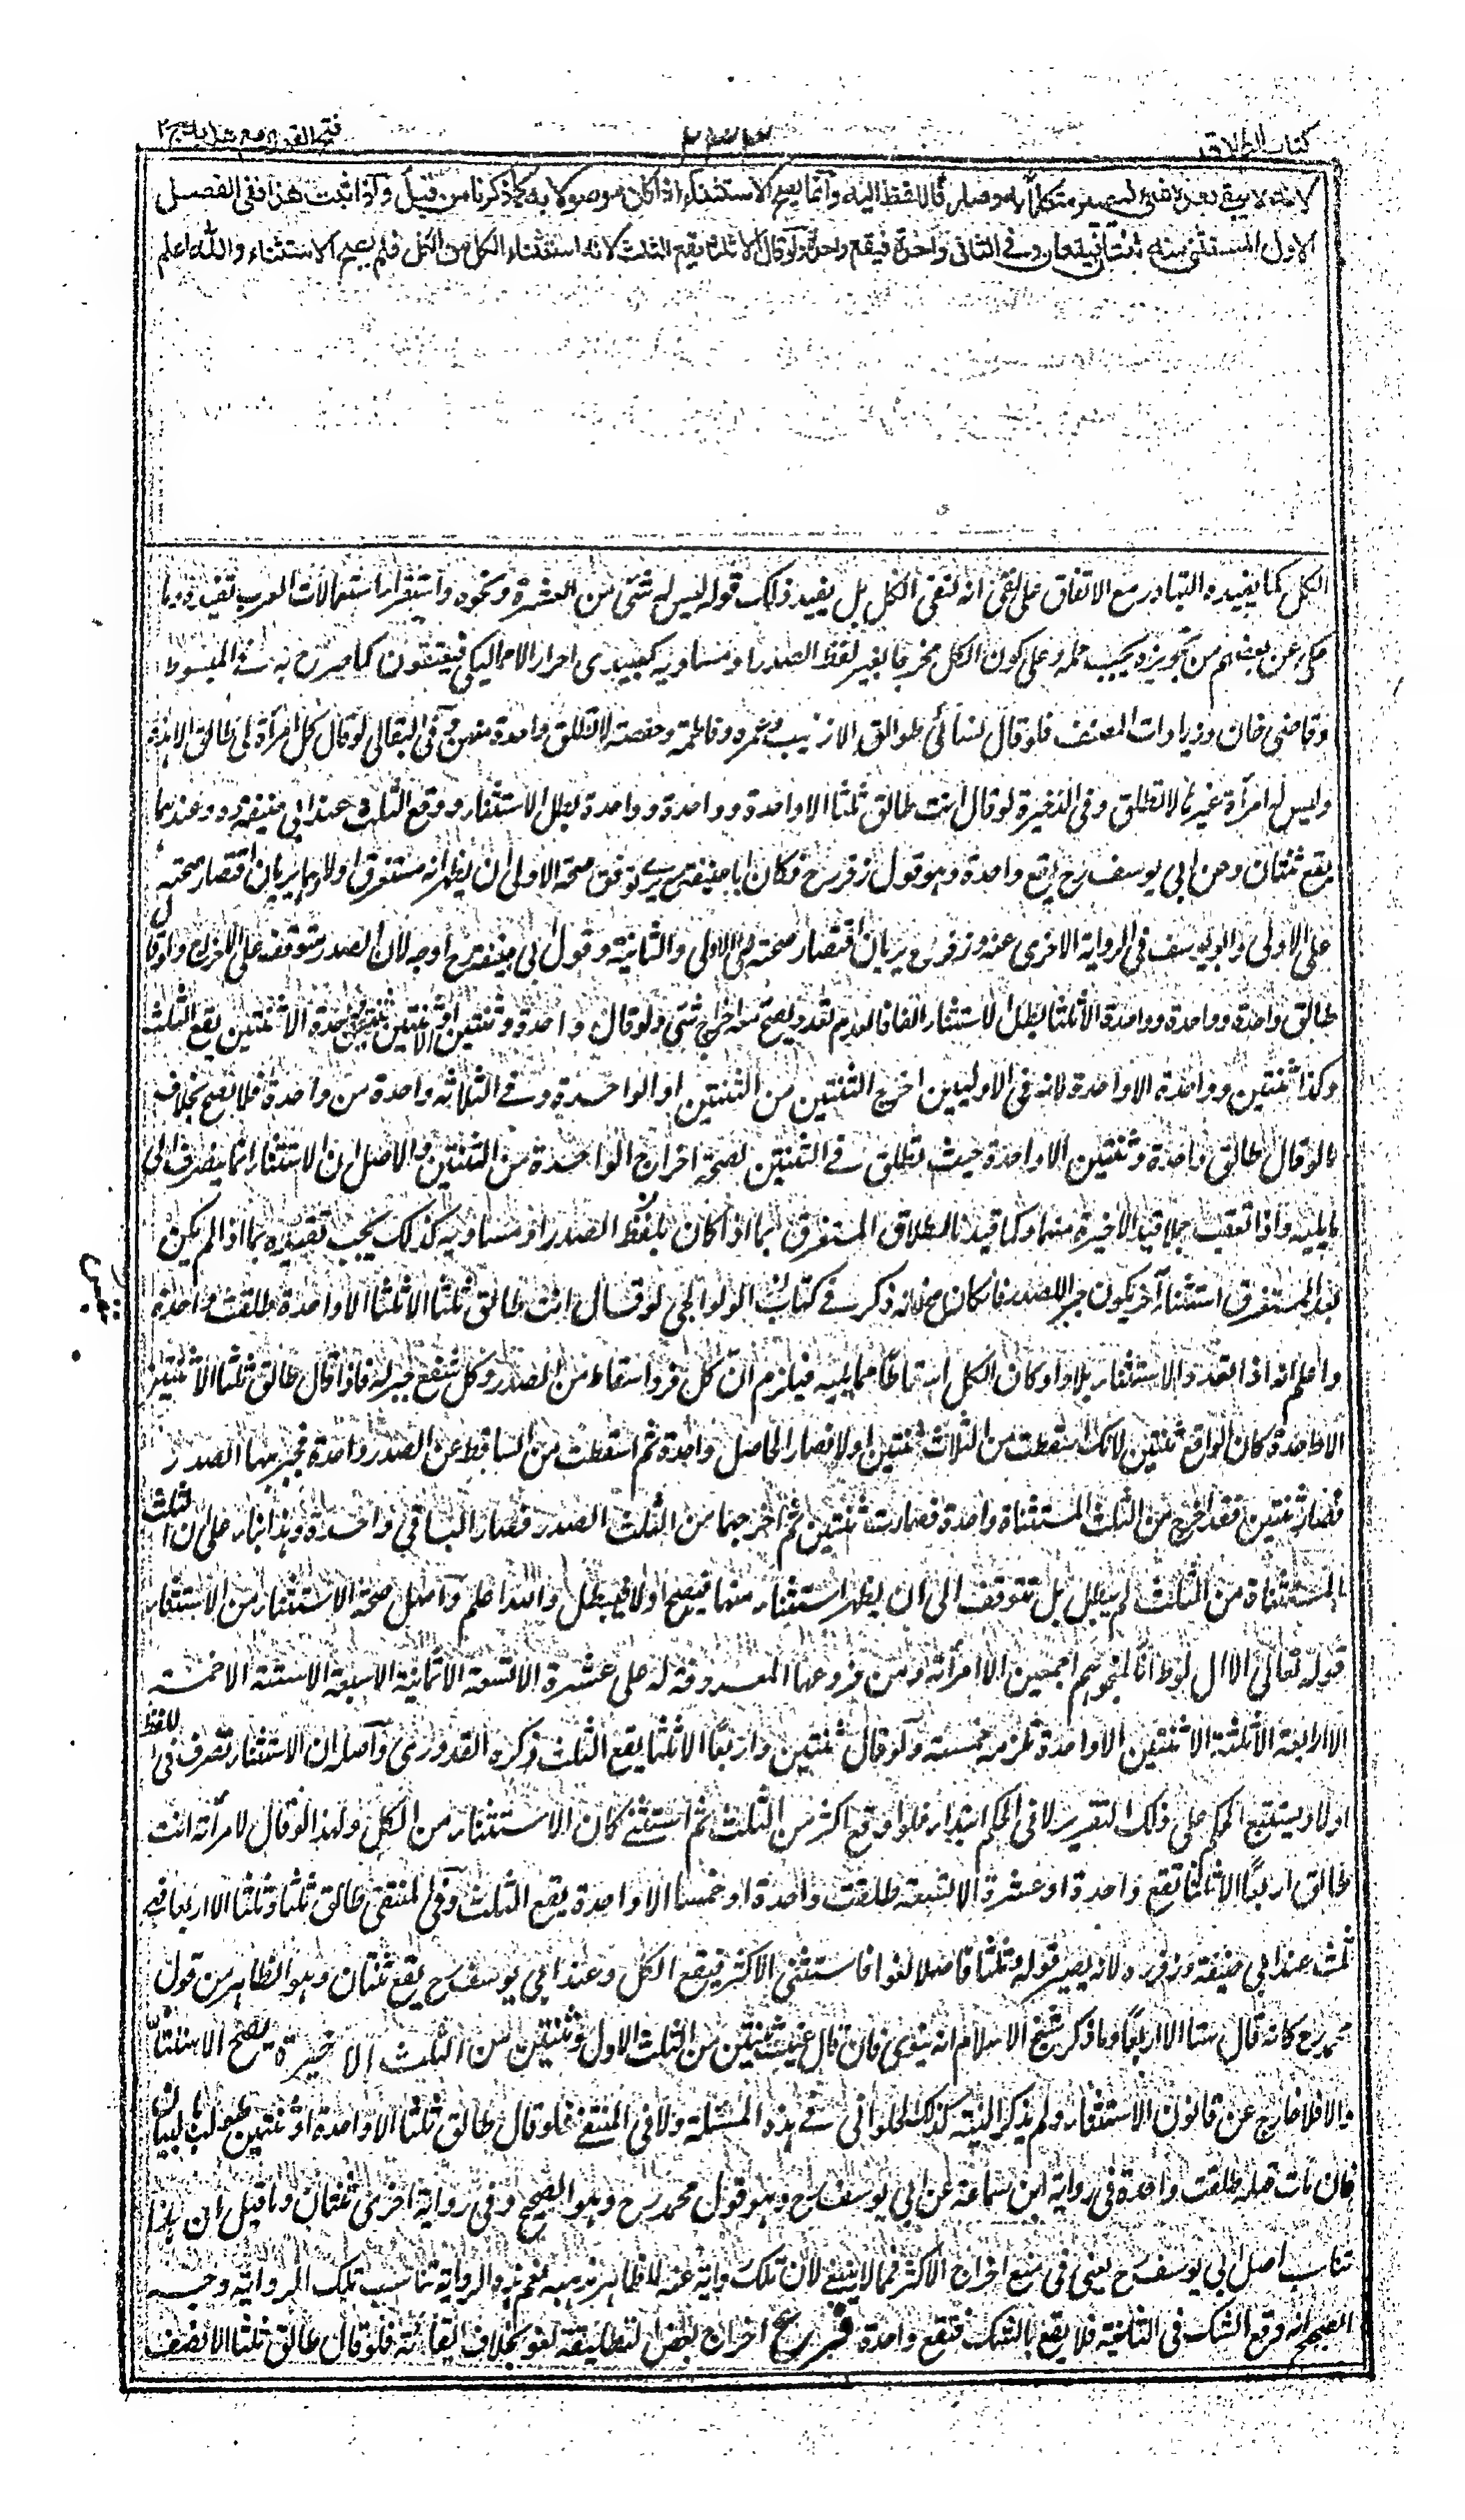 كتاب الطلاق
٢٣٣
فتح القدير مع هدايه ج ٢
لانه لا يبقى بعده شئ ليصير متكلما به وصارفا للفظ اليه وانما يصح الاستثناء اذا كان موصولا به كما ذكرنا من قبل واذا ثبت هذا ففي الفصل
الاول المستثنى منه ثنتان فيقعان وفي الثاني واحدة فيقع واحدة ولو قال الا ثلثا يقع الثلث لانه استثناء الكل من الكل فلم يصح الاستثناء والله اعلم
الكل كما يفيده التبادر مع الاتفاق على انه لنفى الكل بل يفيد ذلك قوله ليس له شئ من العشرة ونحوه واستقراء استعمالات العرب تفيده وما
حكى عن بعضهم من تجويزه يجب حمله على كون الكل مخرجا بغير لفظ الصدر او مساويه كعبيدى احرار الا مماليكى فيعتقون كما صرح به فى المبسوط
وقاضى خان وزيادات المصنف فلو قال نسائى طوالق الا زينب وعمره وفاطمة وحفصة لا تطلق واحدة منهن وفى البقالى لو قال كل امرأة لى طالق الا هذه
وليس له امرأة غيرها لا تطلق وفى الذخيرة لو قال انت طالق ثلثا الا واحدة وواحدة وواحدة بطل الاستثناء ووقع الثلث عند ابى حنيفة رح وعندهما
يقع ثنتان وعن ابى يوسف رح يقع واحدة وهو قول زفر رح فكان ابا حنيفة رح يرى توقف صحة الاولى ان يظهر انه مستغرق اولا وهما يريان اقتصار صحته
على الاولى وابو يوسف فى الرواية الاخرى عنه وزفر رح يريان اقتصار صحته على الاولى والثانية وقول ابى حنيفة رح اوجه لان الصدر متوقف على الاخراج ولو قال
طالق واحدة وواحدة وواحدة الا ثلثا بطل الاستثناء اتفاقا لعدم تعدد يصح معه اخراج شئ ولو قال واحدة وثنتين الا ثنتين او ثنتين وواحدة الا ثنتين يقع الثلث
وكذا ثنتين وواحدة الا واحدة لانه فى الاوليين اخرج الثنتين من الثنتين او الواحدة وفى الثالثة واحدة من واحدة فلا يصح بخلاف
ما لو قال طالق واحدة وثنتين الا واحدة حيث تطلق فى الثنتين لصحة اخراج الواحدة من الثنتين والاصل ان الاستثناء انما ينصرف الى
ما يليه واذا تعقب جملا قيد الاخيرة منها وكما قيدنا بطلان المستغرق بما اذا كان بلفظ الصدر او مساويه كذلك يجب تقييده بما اذا لم يكن
بعد المستغرق استثناء آخر يكون جبرا للصدر فان كان صح لانه ذكر فى كتاب الولوالجى لو قال انت طالق ثلثا الا ثلثا الا واحدة طلقت واحدة
واعلم انه اذا تعدد الاستثناء بلا واو كان الكل اسقاطا مما يليه فيلزم ان كل فرد اسقاط من الصدر وكل شفع جبر له فاذا قال طالق ثلثا الا ثنتين
الا واحدة كان الواقع ثنتين لانك اسقطت من الثلاث ثنتين اولا فصار الحاصل واحدة ثم اسقطت من الساقط عن الصدر واحدة فجبر بها الصدر
فصار ثنتين فقد اخرج من الثلث المستثناة واحدة فصارت ثنتين ثم اخرجهما من الثلث الصدر فصار الباقى واحدة وهذا بناء على ان الثلث
المستثناة من الثلث لم يبطل بل تتوقف الى ان يظهر استثناء منها فيصح اولا فيبطل والله اعلم واصل صحة الاستثناء من الاستثناء
قوله تعالى الا آل لوط انا لمنجوهم اجمعين الا امرأته ومن فروعها المعروفة له على عشرة الا تسعة الا ثمانية الا سبعة الا ستة الا خمسة
الا اربعة الا ثلثة الا ثنتين الا واحدة تلزمه خمسة ولو قال ثنتين واربعا الا ثلثا يقع الثلث ذكره القدورى واصله ان الاستثناء تصرف فى اللفظ
اولا ويستتبع الحكم على ذلك التقدير لا فى الحكم ابتداء فلو اوقع اكثر من الثلث ثم استثنى كان الاستثناء من الكل ولهذا لو قال لامرأته انت
طالق اربعا الا ثلثا تقع واحدة او عشرة الا تسعة طلقت واحدة او خمسا الا واحدة يقع الثلث وفى المنتقى طالق ثلثا وثلثا الا اربعا فهى
ثلث عند ابى حنيفة وزفر رح لانه يصير قوله وثلثا فاصلا لغوا فاستثنى الاكثر فيقع الكل وعند ابى يوسف رح يقع ثنتان وهو الظاهر من قول
محمد رح كانه قال ستا الا اربعا وما ذكر شيخ الاسلام انه ينوى فان قال عنيت ثنتين من الثلث الاول وثنتين من الثلث الاخيرة يصح الاستثناء
والا فلا خارج عن قانون الاستثناء ولم يذكر النية كذلك الحلوانى فى هذه المسئلة ولا فى المنتقى فلو قال طالق ثلثا الا واحدة او ثنتين طولب بالبيان
فان مات قبله طلقت واحدة فى رواية ابن سماعة عن ابى يوسف رح وهو قول محمد رح وهو الصحيح وفى رواية اخرى ثنتان وما قيل ان هذا
تناسب اصل ابى يوسف رح يعنى فى منع اخراج الاكثر فمما لا ينبغى لان تلك رواية عنه لا ظاهر مذهبه نعم هذه الرواية تناسب تلك الرواية وجه
الصحيح انه وقع الشك فى الثانية فلا يقع بالشك فتقع واحدة فرع اخراج بعض التطليقة لغو بخلاف ايقاعه فلو قال طالق ثلثا الا نصف